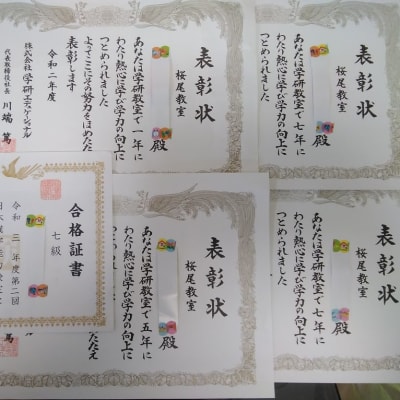 表彰状
桜尾教室
殿
あなたは学研教室で一年に
わたり熱心に学び学力の向上に
つとめられました
よってここにその努力をほめたたえ
表彰します
令和二年度
株式会社 学研エデュケーショナル
代表取締役社長 川端 篤
表彰状
桜尾教室
殿
あなたは学研教室で七年に
わたり熱心に学び学力の向上に
つとめられました
合格証書
七級
令和三年度第二回
表彰状
桜尾教室
殿
あなたは学研教室で五年に
わたり熱心に学び学力の向上に
つとめられました
たたえ
篤
表彰状
桜尾教室
あなたは学研教室で七年に
わたり熱心に学び学力の向上に
つとめられました